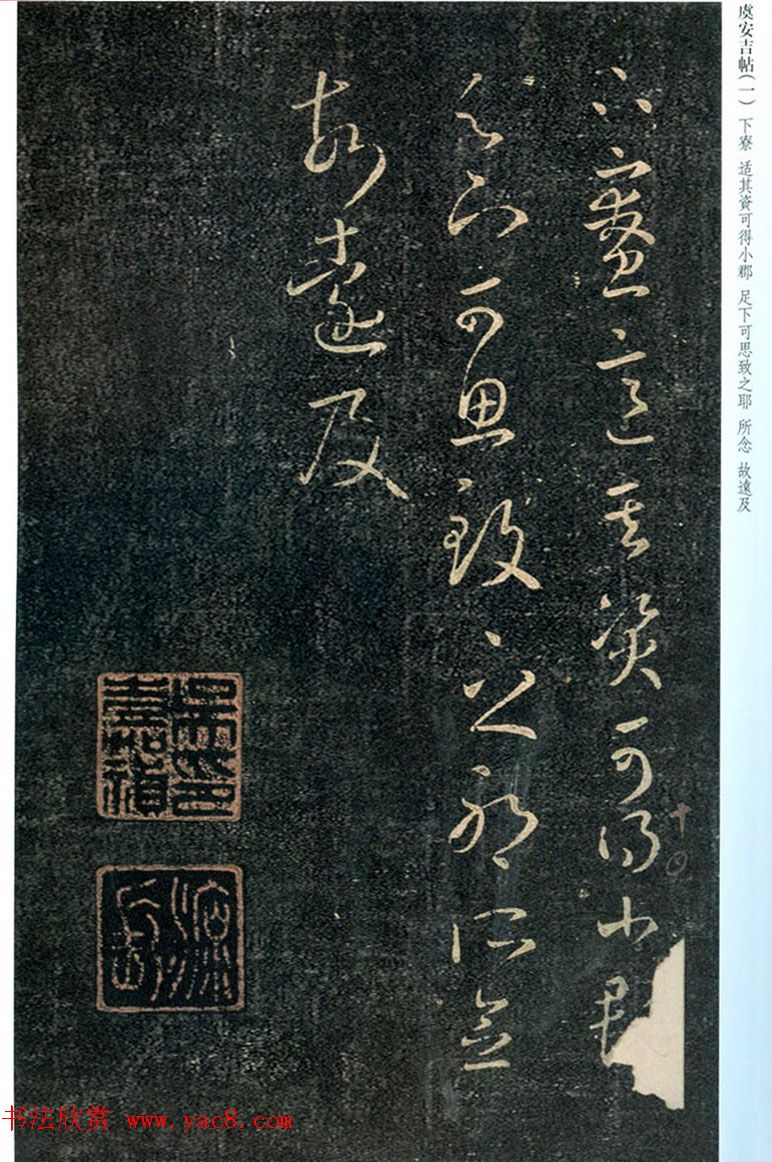 虞安吉帖(一) 下寮 适其資可得小郡 足下可思致之耶 所念 故遠及
下寮適其資可得小郡
足下可思致之耶所念
故遠及
十
书法欣赏 www.yac8.com